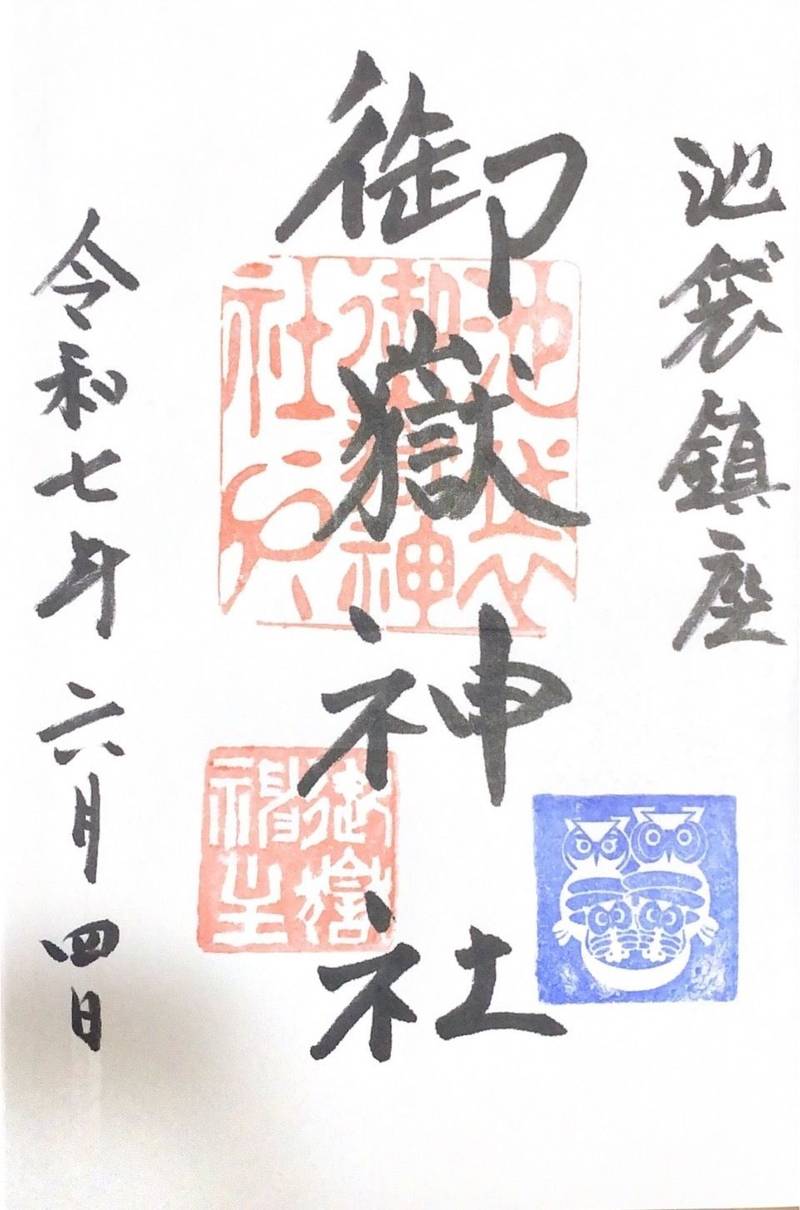 池袋鎮座
御嶽神社
令和七年六月四日
池袋
御嶽神
社
御嶽